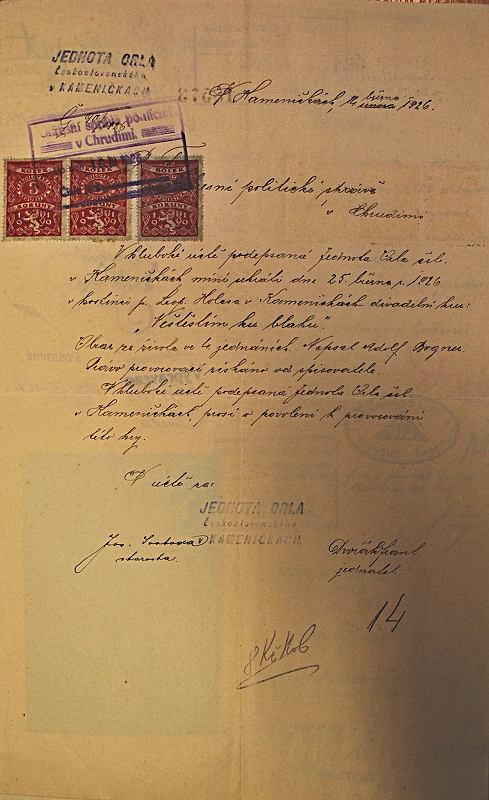 JEDNOTA ORLA
Československého
v KAMENIČKÁCH
V Kameničkách, 4. února března 1926.
Okresní správa politická
v Chrudimi.
KOLEK KOLEK KOLEK
KORUNY KORUNY KORUNY
Okresní politické správě
v Chrudimi
V hluboké úctě podepsaná Jednota Orla čsl.
v Kameničkách míní sehráti dne 25. března r. 1926
v hostinci p. Leop. Holasa v Kameničkách divadelní hru:
„Neštěstím ku blahu".
Obraz ze života ve 4 jednáních. Napsal Adolf Bogner.
Právo provozovací získáno od spisovatele.
V hluboké úctě podepsaná Jednota Orla čsl.
v Kameničkách, prosí o povolení k provozování
této hry.
V úctě za:
JEDNOTA ORLA
Československého
v KAMENIČKÁCH
Jos. Svoboda
starosta.
Dvořák Frant
jednatel.
14
8 Kč kol